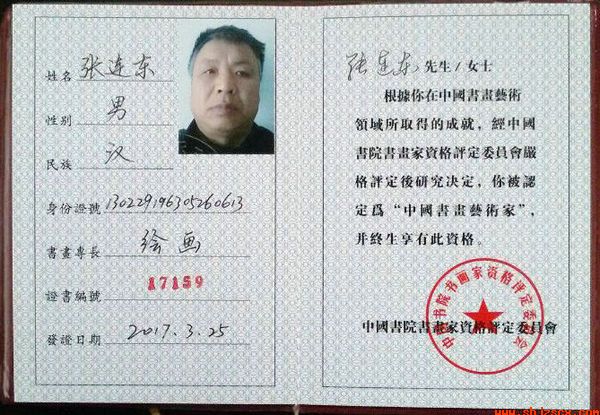 姓名 张连东
性别 男
民族 汉
身份證號 130229196305260613
書畫專長 绘画
證書編號 17159
發證日期 2017.3.25
张连东 先生/女士
根據你在中國書畫藝術
領域所取得的成就，經中國
書院書畫家資格評定委員會嚴
格評定後研究决定，你被認
定爲“中國書畫藝術家”，
并終生享有此資格。
中国书院书画家资格评定委员会
中國書院書畫家資格評定委員會